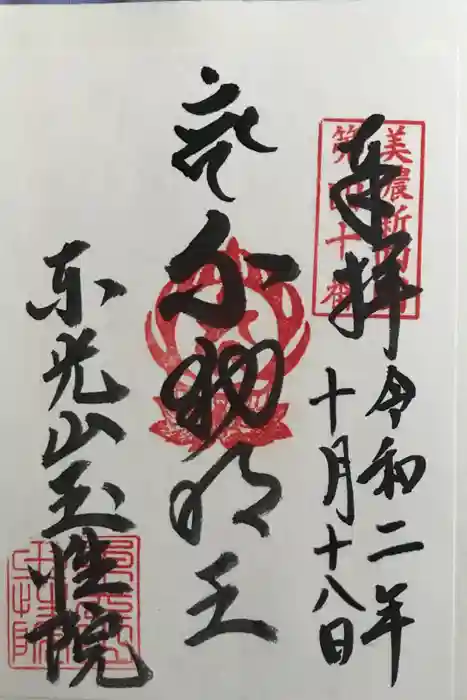 美濃新四国
第四十番
奉拝
令和二年
十月十八日
不動明王
东光山玉性院